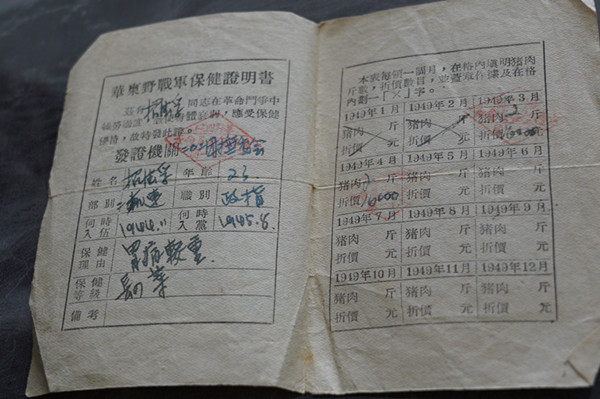 華東野戰軍保健證明書
茲有 同志在革命鬥爭中
應受保健
優待,故特發此證。
發證機關
姓名 年齡 23
部別 職別 政指
何時入伍 1944.11 何時入黨 1945.8.
保健理由 胃病較重.
保健等級
備考
本表每領一個月,在格內填明豬肉
斤數,折價數目,並蓋取作據及在格
內劃一「×」字。
1949年1月 1949年2月 1949年3月
豬肉 斤 豬肉 斤 豬肉 2 斤
折價 元 折價 元 折價 6000 元
1949年4月 1949年5月 1949年6月
豬肉 2 斤 豬肉 斤 豬肉 斤
折價 6000 元 折價 元 折價 元
1949年7月 1949年8月 1949年9月
豬肉 斤 豬肉 斤 豬肉 斤
折價 元 折價 元 折價 元
1949年10月 1949年11月 1949年12月
豬肉 斤 豬肉 斤 豬肉 斤
折價 元 折價 元 折價 元